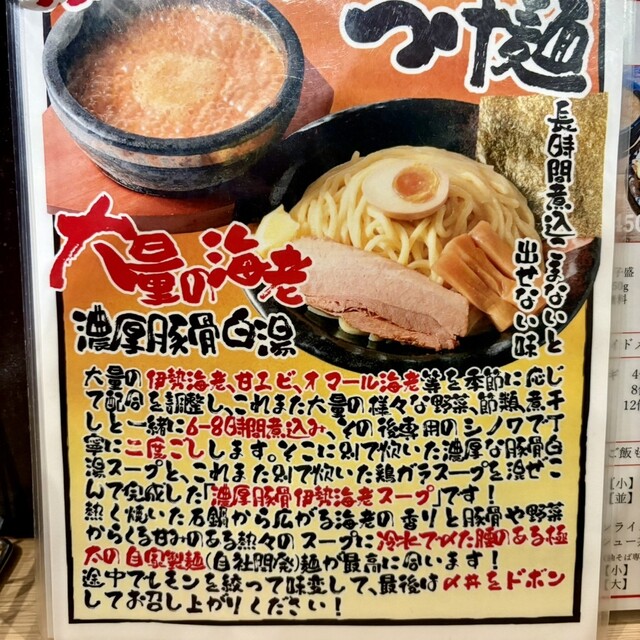 つけ麺
長時間煮込こまないと
出せない味
大量の海老
濃厚豚骨白湯
大量の伊勢海老、甘エビ、オマール海老等を季節に応じ
て配合を調整し、これまた大量の様々な野菜、節類、煮干
しと一緒に6~8時間煮込み、その後専用のシノワで丁
寧に二度ごしします。そこに別で炊いた濃厚な豚骨白
湯スープと、これまた別で炊いた鶏ガラスープを混ぜこ
んで完成した「濃厚豚骨伊勢海老スープ」です!
熱く焼いた石鍋から広がる海老の香りと豚骨や野菜
からくる甘みのある熱々のスープに冷水でしめた腰のある極
太の自家製麺(自社開発)麺が最高に合います!
途中でレモンを絞って味変して、最後は〆丼をドボン
してお召し上がりください!
ご飯も
【小】
【並】
【小】
【大】